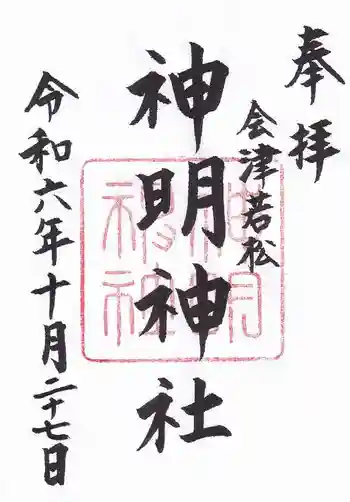 奉拝
会津若松
神明神社
令和六年十月二十七日
神明神社